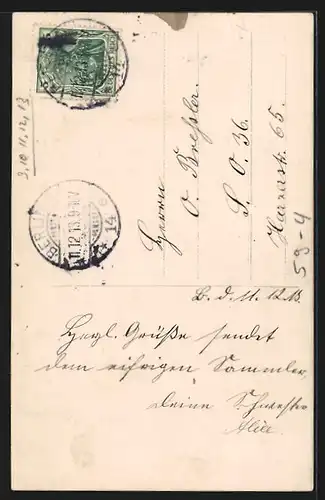 3, 10 11, 12, 13
BERLIN
11.12.13.9-10V
* 14 e
Herrn
O. Bressler.
S. O. 36.
Harzerstr. 65.
59-4
B. d. 11. 12. 13.
Herzl. Grüße sendet
dem eifrigen Sammler,
deine Schwester
Alice.